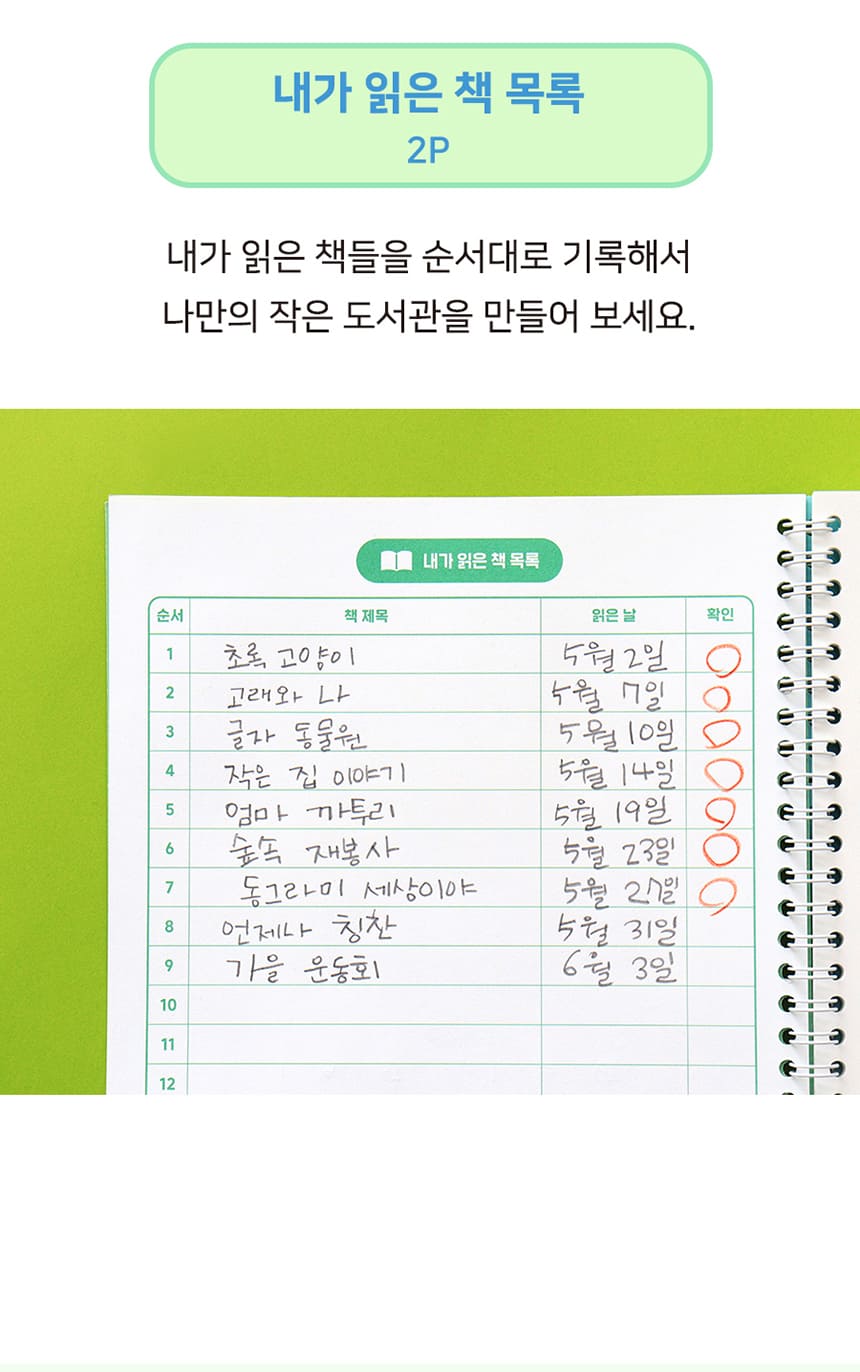 내가 읽은 책 목록
2P
내가 읽은 책들을 순서대로 기록해서
나만의 작은 도서관을 만들어 보세요.
내가 읽은 책 목록
순서 책 제목 읽은 날 확인
1 초록 고양이 5월 2일
2 고래와 나 5월 7일
3 글자 동물원 5월 10일
4 작은 집 이야기 5월 14일
5 엄마 까투리 5월 19일
6 숲속 재봉사 5월 23일
7 동그라미 세상이야 5월 27일
8 언제나 칭찬 5월 31일
9 가을 운동회 6월 3일
10
11
12